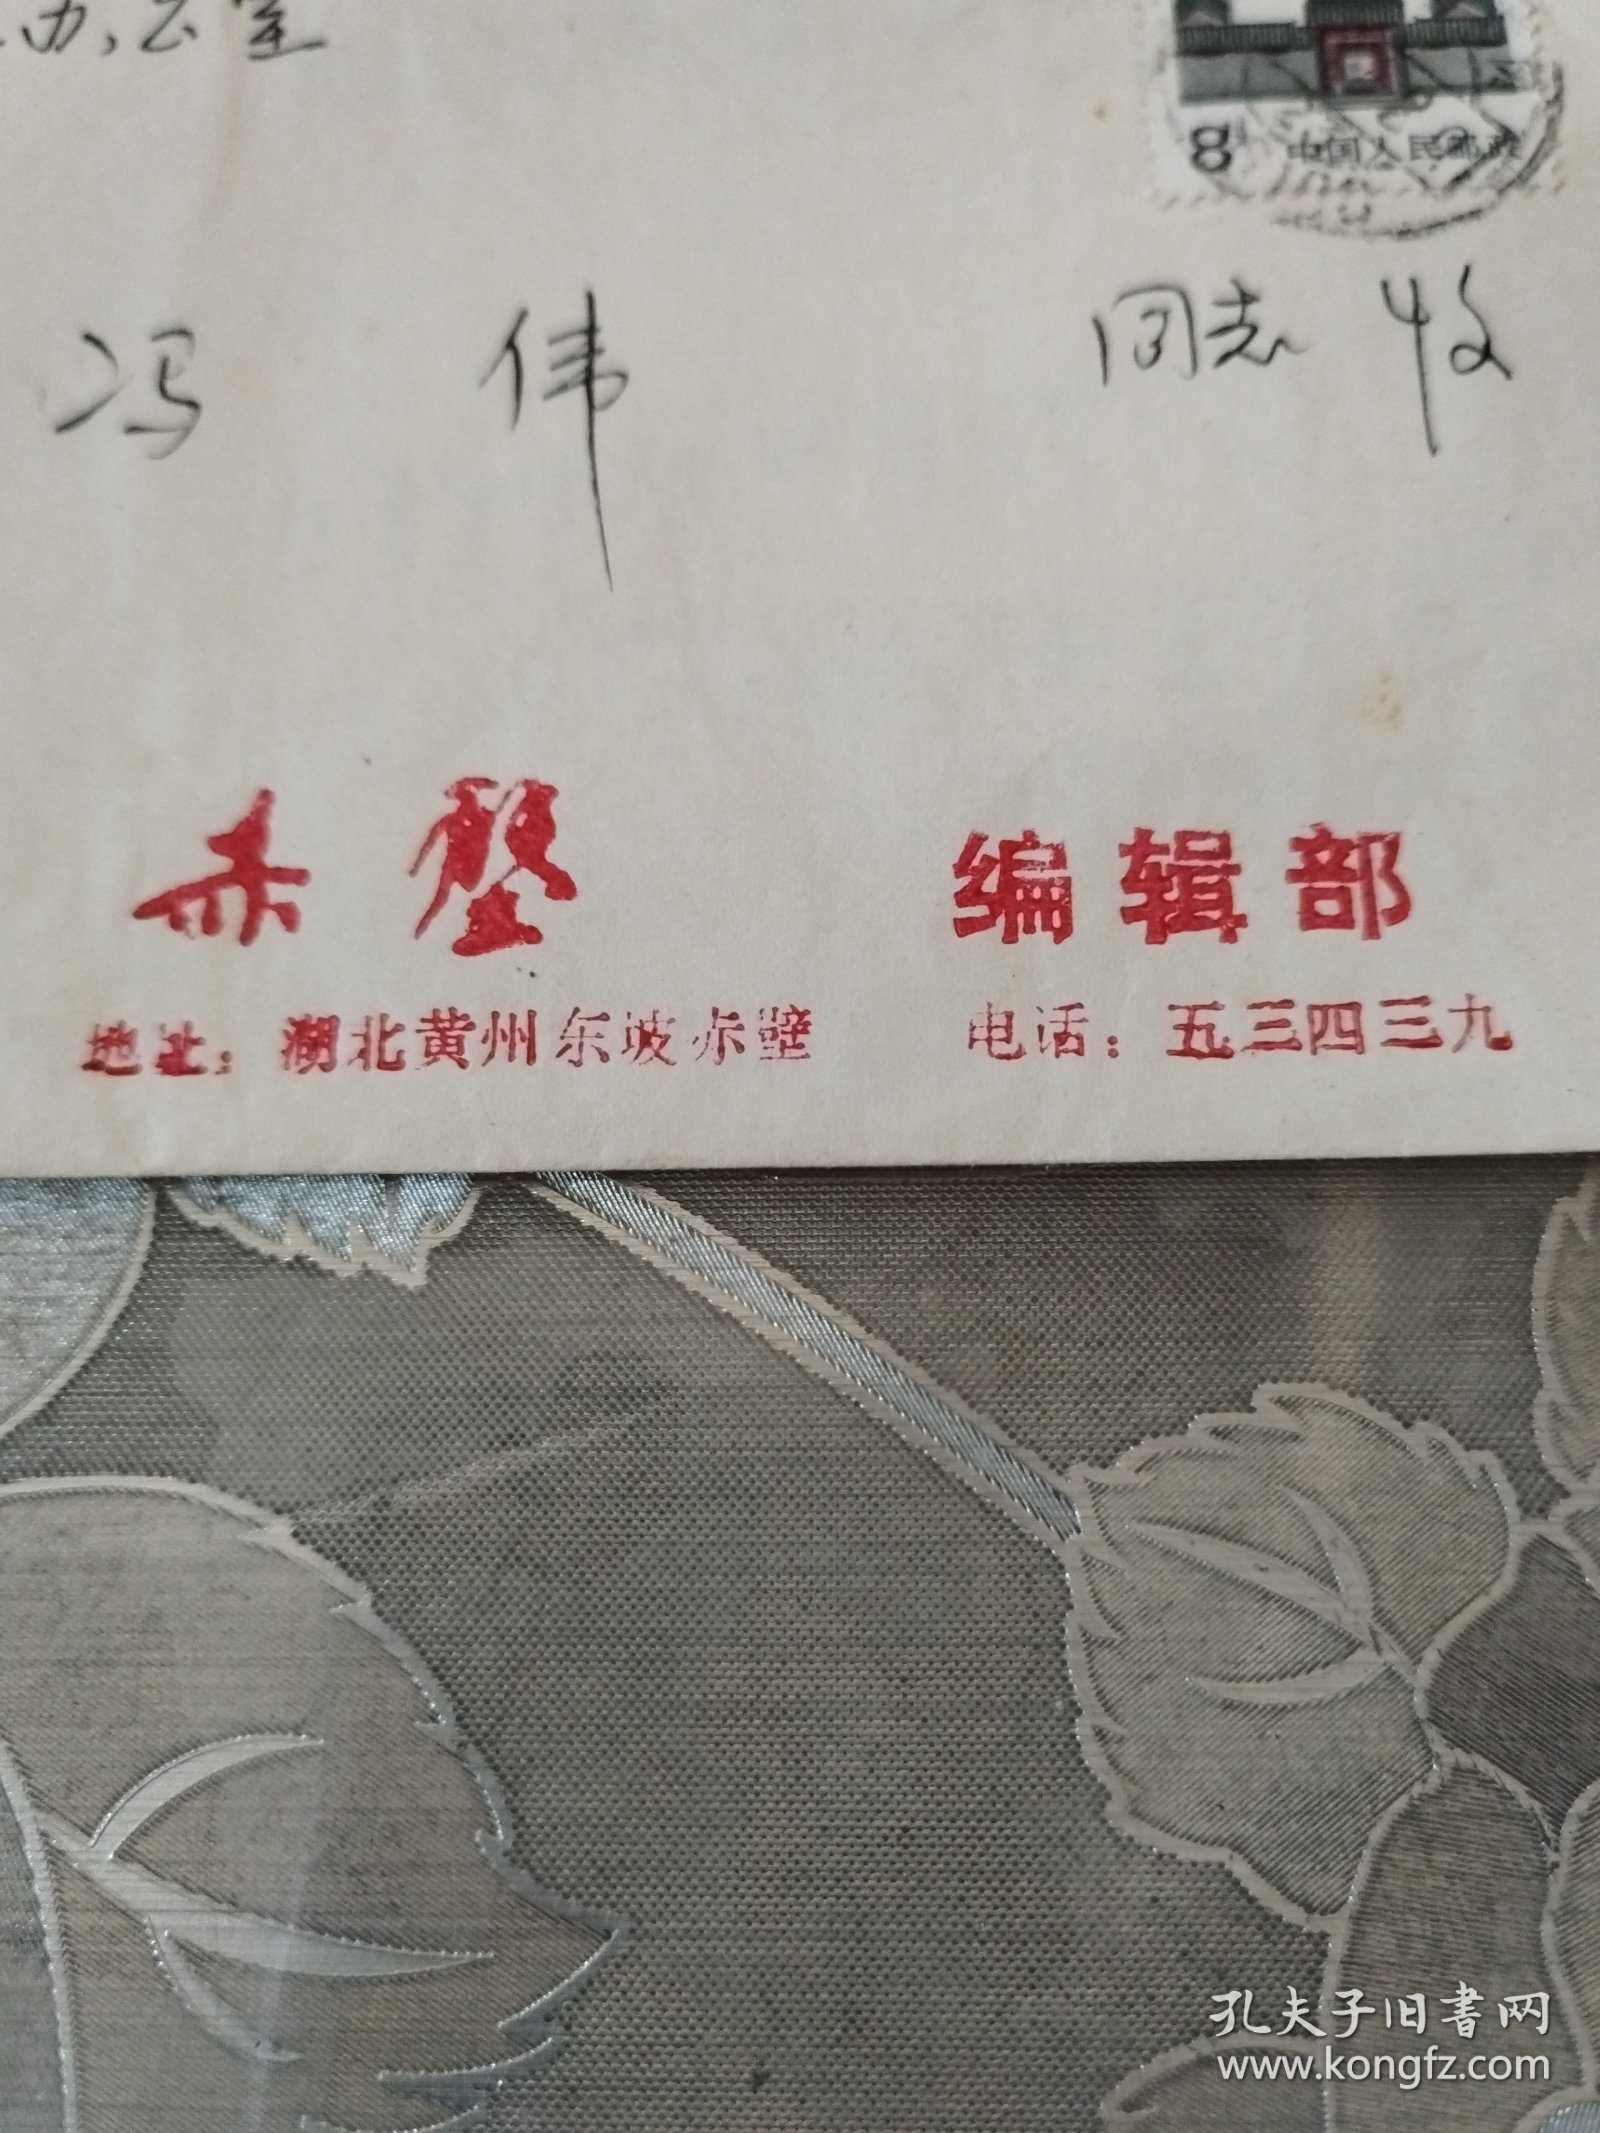 办公室
8 中国人民邮政
冯 伟 同志 收
赤壁 编辑部
地址：湖北黄州东坡赤壁 电话：五三四三九
孔夫子旧书网
www.kongfz.com